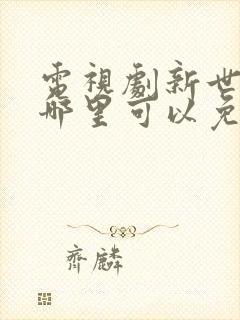 電視劇新世
哪里可以免
齊麟